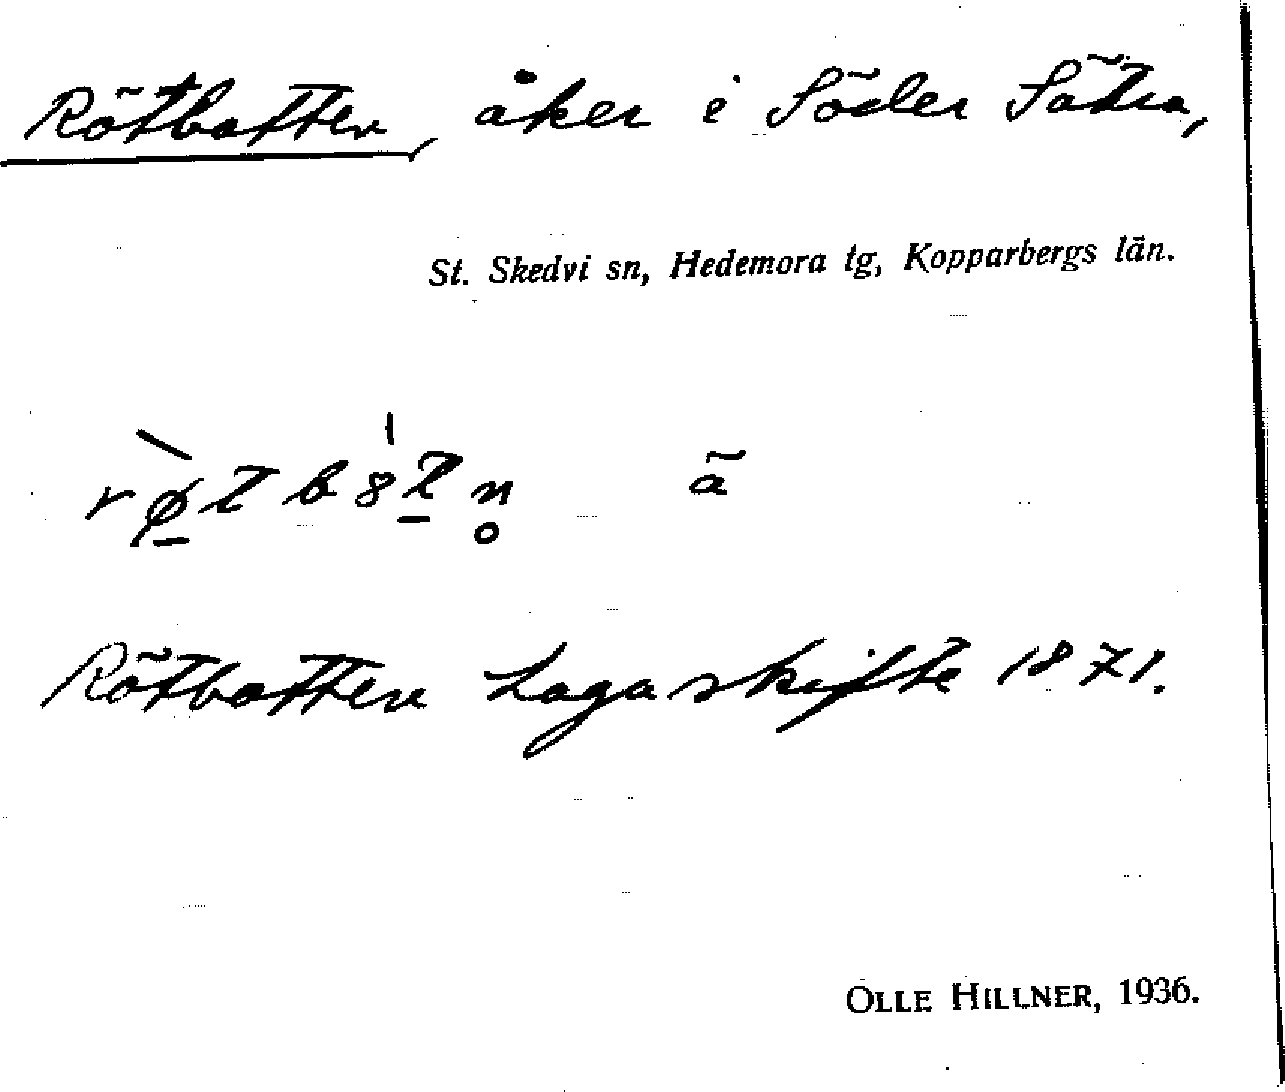 Rötbotten, åker i Söder Sätra,
St. Skedvi sn, Hedemora tg, Kopparbergs län.
rø̠̀tb8t̠n̥ ã
Rötbotten Laga skifte 1871.
OLLE HILLNER, 1936.